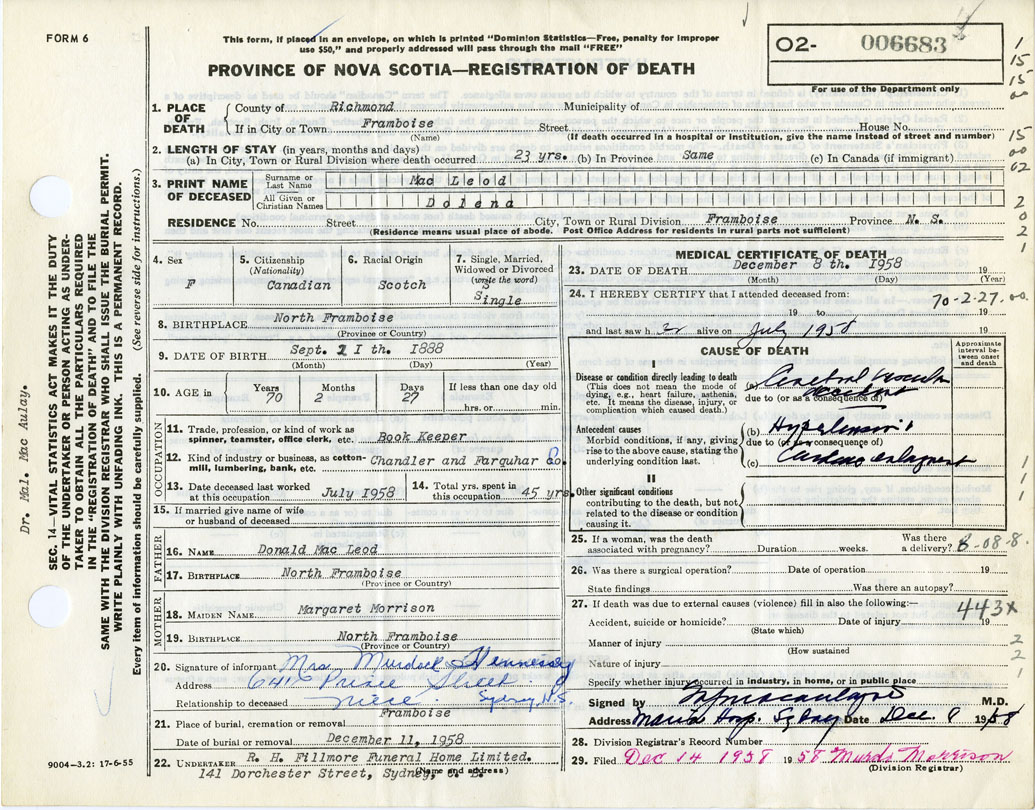 FORM 6
This form, if placed in an envelope, on which is printed "Dominion Statistics—Free, penalty for improper
use $50," and properly addressed will pass through the mail "FREE"
PROVINCE OF NOVA SCOTIA—REGISTRATION OF DEATH
02- 006683
For use of the Department only
1. PLACE OF DEATH
County of Richmond Municipality of
If in City or Town Framboise Street House No.
(Name) (If death occurred in a hospital or institution, give the name instead of street and number)
2. LENGTH OF STAY (in years, months and days)
(a) In City, Town or Rural Division where death occurred 23 yrs. (b) In Province Same (c) In Canada (if immigrant)
3. PRINT NAME OF DECEASED
Surname or Last Name Mac Leod
All Given or Christian Names Dolena
RESIDENCE No. Street City, Town or Rural Division Framboise Province N. S.
(Residence means usual place of abode. Post Office Address for residents in rural parts not sufficient)
4. Sex
F
5. Citizenship
(Nationality)
Canadian
6. Racial Origin
Scotch
7. Single, Married,
Widowed or Divorced
(write the word)
S
Single
8. BIRTHPLACE North Framboise
(Province or Country)
9. DATE OF BIRTH Sept. 11 th. 1888
(Month) (Day) (Year)
10. AGE in
Years 70
Months 2
Days 27
If less than one day old
hrs. or min.
OCCUPATION
11. Trade, profession, or kind of work as
spinner, teamster, office clerk, etc. Book Keeper
12. Kind of industry or business, as cotton-
mill, lumbering, bank, etc. Chandler and Farquhar Co.
13. Date deceased last worked
at this occupation July 1958
14. Total yrs. spent in
this occupation 45 yrs.
15. If married give name of wife
or husband of deceased
FATHER
16. NAME Donald Mac Leod
17. BIRTHPLACE North Framboise
(Province or Country)
MOTHER
18. MAIDEN NAME Margaret Morrison
19. BIRTHPLACE North Framboise
(Province or Country)
20. Signature of informant Mrs. Murdock Hennessy
Address 641 Prince Street
Relationship to deceased niece. Sydney, N.S.
21. Place of burial, cremation or removal Framboise
Date of burial or removal December 11, 1958
22. UNDERTAKER R. H. Fillmore Funeral Home Limited.
141 Dorchester Street, Sydney,
(Name and address)
MEDICAL CERTIFICATE OF DEATH
23. DATE OF DEATH December 8 th. 1958 19
(Month) (Day) (Year)
24. I HEREBY CERTIFY that I attended deceased from:
70-2-27.00
19 to 19
and last saw h er alive on July 1958 19
CAUSE OF DEATH
Approximate interval between onset and death
I
Disease or condition directly leading to death
(This does not mean the mode of
dying, e.g., heart failure, asthenia,
etc. It means the disease, injury, or
complication which caused death.)
(a) Cerebral Vascular
due to (or as a consequence of)
Antecedent causes
Morbid conditions, if any, giving
rise to the above cause, stating the
underlying condition last.
(b) Hypertension
due to (or as consequence of)
(c) Cardiac enlargement
II
Other significant conditions
contributing to the death, but not
related to the disease or condition
causing it.
25. If a woman, was the death
associated with pregnancy? Duration weeks. Was there
a delivery? 8-08-8.
26. Was there a surgical operation? Date of operation 19
State findings Was there an autopsy?
27. If death was due to external causes (violence) fill in also the following:—
443X
Accident, suicide or homicide? Date of injury 19
(State which)
Manner of injury
(How sustained
Nature of injury
Specify whether injury occurred in industry, in home, or in public place
Signed by M.D.
Address Hosp. Sydney Date Dec. 9 1958
28. Division Registrar's Record Number
29. Filed Dec 14 1958 1958 Murdo Morrison
(Division Registrar)
9004—3.2: 17-6-55
Dr. Mal. Mac Aulay.
SEC. 14—VITAL STATISTICS ACT MAKES IT THE DUTY
OF THE UNDERTAKER OR PERSON ACTING AS UNDER-
TAKER TO OBTAIN ALL THE PARTICULARS REQUIRED
IN THE "REGISTRATION OF DEATH" AND TO FILE THE
SAME WITH THE DIVISION REGISTRAR WHO SHALL ISSUE THE BURIAL PERMIT.
WRITE PLAINLY WITH UNFADING INK. THIS IS A PERMANENT RECORD.
Every item of information should be carefully supplied. (See reverse side for instructions.)
1
15-
15-
00
15-
00
02
2
0
2
1
1
1
2
2
1